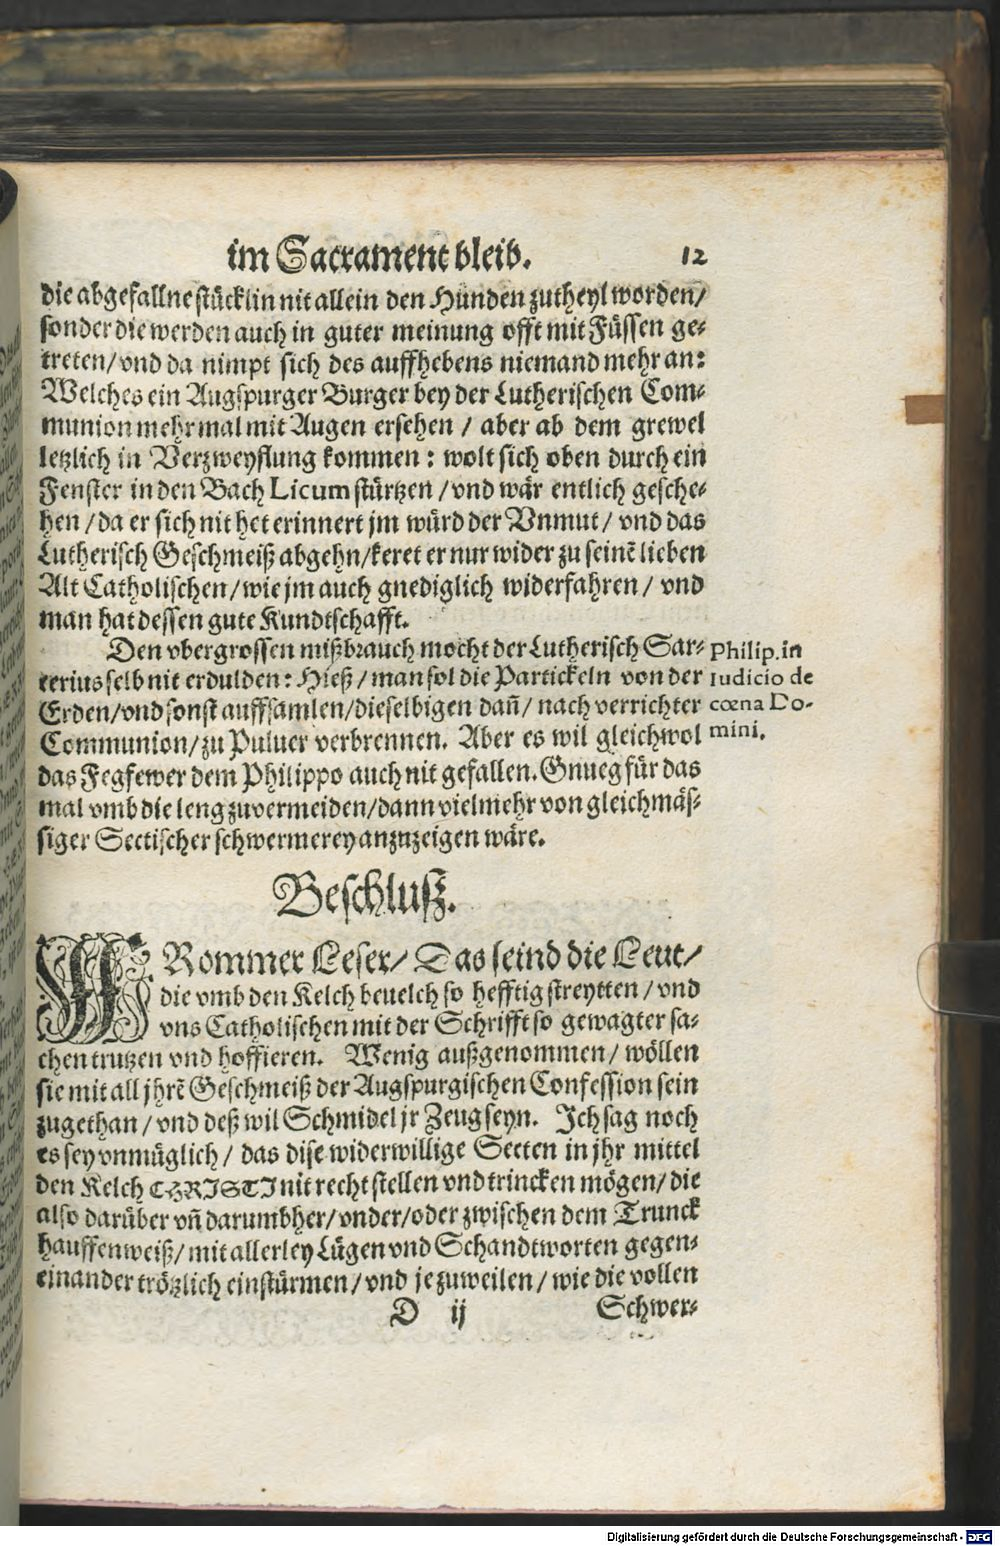 im Sacrament bleib. 12
die abgefallne stücklin nit allein den Hunden zutheyl worden/
sonder die werden auch in guter meinung offt mit Füssen ge⸗
treten/ vnd da nimpt sich des auffhebens niemand mehr an:
Welches ein Augspurger Burger bey der Lutherischen Com⸗
munion mehrmal mit Augen ersehen / aber ab dem grewel
letzlich in Verzweyflung kommen: wolt sich oben durch ein
Fenster in den Bach Licum stürtzen / vnd wär entlich gesche⸗
hen / da er sich nit het erinnert jm würd der Vnmut / vnd das
Lutherisch Geschmeiß abgehn/keret er nur wider zu seinē lieben
Alt Catholischen / wie jm auch gnediglich widerfahren / vnd
man hat dessen gute Kundtschafft.
Den vbergrossen mißbrauch mocht der Lutherisch Sar⸗
cerius selb nit erdulden: Hieß / man sol die Partickeln von der
Erden/vnd sonst auffsamlen/dieselbigen dañ/ nach verrichter
Communion/ zu Puluer verbrennen. Aber es wil gleichwol
das Fegfewer dem Philippo auch nit gefallen. Gnueg für das
mal vmb die leng zuvermeiden/dann vielmehr von gleichmäs⸗
siger Sectischer schwermerey anzuzeigen wäre.
Philip. in
Iudicio de
cœna Do-
mini.
Beschluß.
FRommer Leser/ Das seind die Leut/
die vmb den Kelch beuelch so hefftig streytten / vnd
vns Catholischen mit der Schrifft so gewagter sa⸗
chen trutzen vnd hoffieren. Wenig außgenommen/ wöllen
sie mit all jhrē Geschmeiß der Augspurgischen Confession sein
zugethan / vnd deß wil Schmidel jr Zeug seyn. Ich sag noch
es sey vnmüglich / das dise widerwillige Secten in jhr mittel
den Kelch CHRISTI nit recht stellen vnd trincken mögen/ die
also darüber vñ darumbher/ vnder/oder zwischen dem Trunck
hauffenweiß/ mit allerley Lügen vnd Schandtworten gegen⸗
einander trötzlich einstürmen / vnd jezuweilen / wie die vollen
D ij Schwer⸗
Digitalisierung gefördert durch die Deutsche Forschungsgemeinschaft - DFG